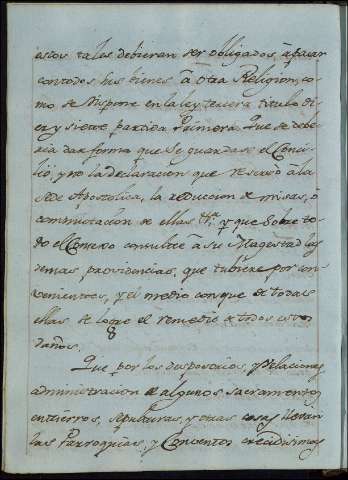 estos tales debieran ser obligados, á pasar
con todos sus bienes á otra Religion, co-
mo se dispone en la ley tercera titulo di-
ez y siete, partida Primera. Que se debe-
ria dar forma que se guardase el Conci-
lio, y no la declaracion que reservó á la
Sede Apostolica, la reduccion de misas, ó
commutacion de ellas &a. y que sobre to-
do el Consexo consulte a su Magestad las
demas providencias, que tubiere por con-
venientes, y el medio con que de todas
ellas se logre el remedio de todos estos
daños.
8
Que por los desposorios, y velaciones
administracion de algunos sacramentos,
entierros, sepulturas, y otras cosas llevan
las Parroquias, y Conventos crecidisimos